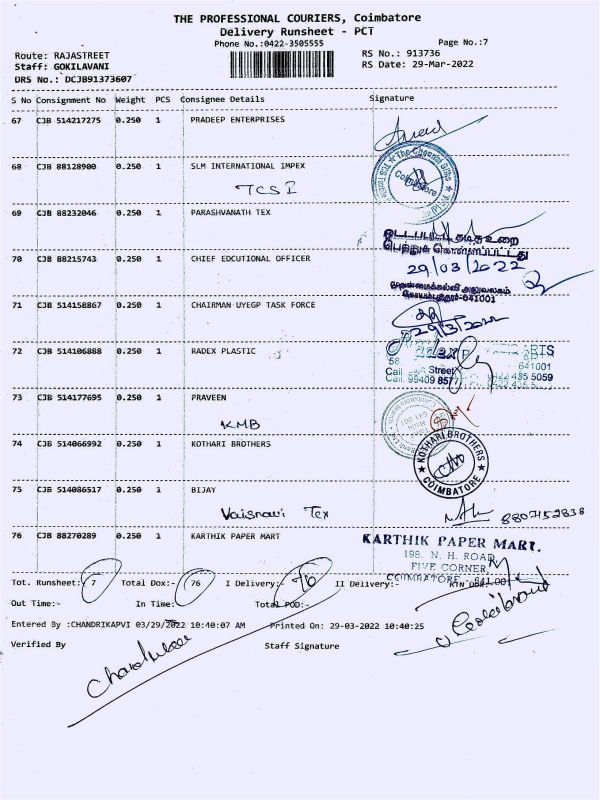 THE PROFESSIONAL COURIERS, Coimbatore
Delivery Runsheet - PCT
Phone No.:0422-3505555 Page No.:7
Route: RAJASTREET RS No.: 913736
Staff: GOKILAVANI RS Date: 29-Mar-2022
DRS No.: DCJB91373607
S No Consignment No Weight PCS Consignee Details Signature
67 CJB 514217275 0.250 1 PRADEEP ENTERPRISES
68 CJB 88128900 0.250 1 SLM INTERNATIONAL IMPEX
TCS I
Coimbatore
69 CJB 88232046 0.250 1 PARASHVANATH TEX
70 CJB 88215743 0.250 1 CHIEF EDCUTIONAL OFFICER
29/03/2022
71 CJB 514158867 0.250 1 CHAIRMAN UYEGP TASK FORCE
29/3/2022
72 CJB 514106888 0.250 1 RADEX PLASTIC
ARTS
Street 641001
Cell. 99409 8577
73 CJB 514177695 0.250 1 PRAVEEN
KMB
74 CJB 514066992 0.250 1 KOTHARI BROTHERS
KOTHARI BROTHERS
COIMBATORE
75 CJB 514086517 0.250 1 BIJAY
Vaisnavi Tex 8807152838
76 CJB 88270289 0.250 1 KARTHIK PAPER MART
KARTHIK PAPER MART.
198. N. H. ROAD
FIVE CORNER
COIMBATORE - 641 001
Tot. Runsheet: 7 Total Dox:- 76 I Delivery:- 76 II Delivery:- RTN DOX:-
Out Time:- In Time:- Total POD:-
Entered By :CHANDRIKAPVI 03/29/2022 10:40:07 AM Printed On: 29-03-2022 10:40:25
Verified By Staff Signature